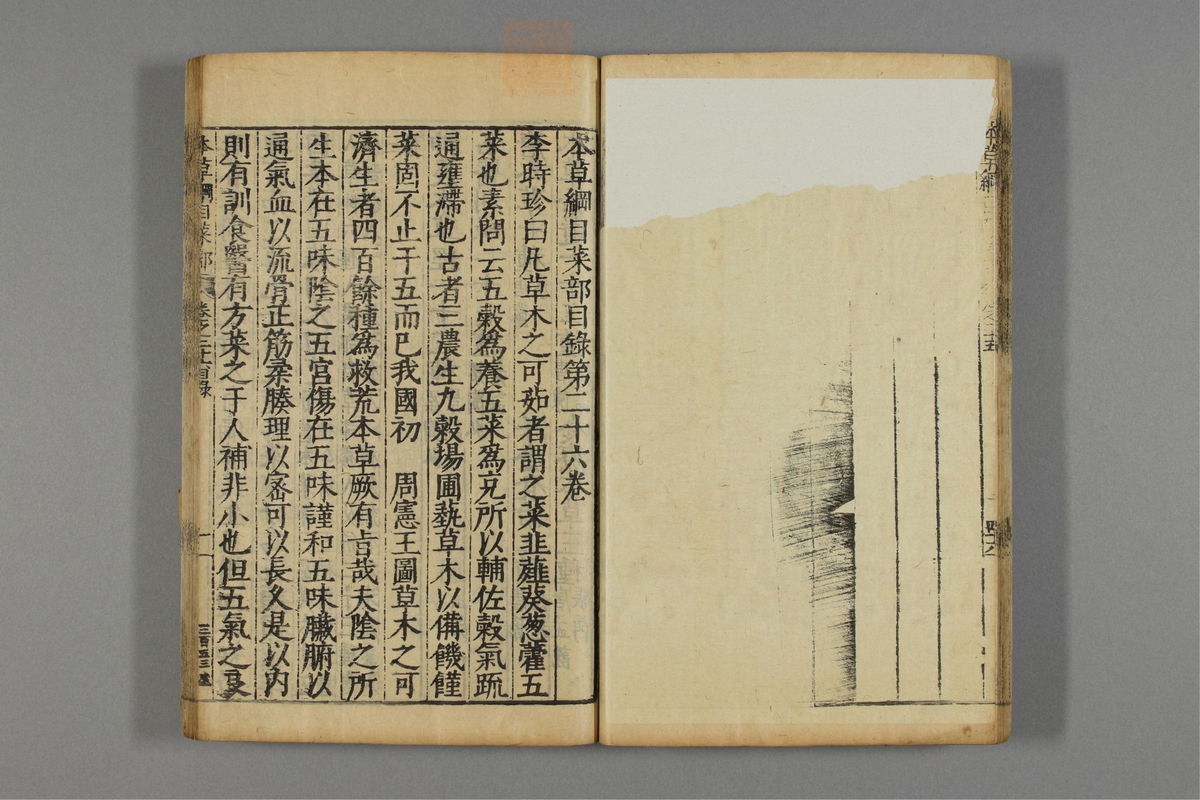 本草綱目菜部目錄第二十六卷
李時珍曰凡草木之可茹者謂之菜韭薤葵葱藿五
菜也素問云五穀爲養五菜爲充所以輔佐穀氣䟽
通壅滯也古者三農生九穀場圃蓺草木以備饑饉
菜固不止于五而已我國初　周憲王圖草木之可
濟生者四百餘種爲救荒本草厥有旨哉夫陰之所
生本在五味陰之五宫傷在五味謹和五味臟腑以
通氣血以流骨正筋柔腠理以密可以長久是以内
則有訓食醫有方菜之于人補非小也但五氣之良
本草綱目菜部
卷之二十六目錄
一